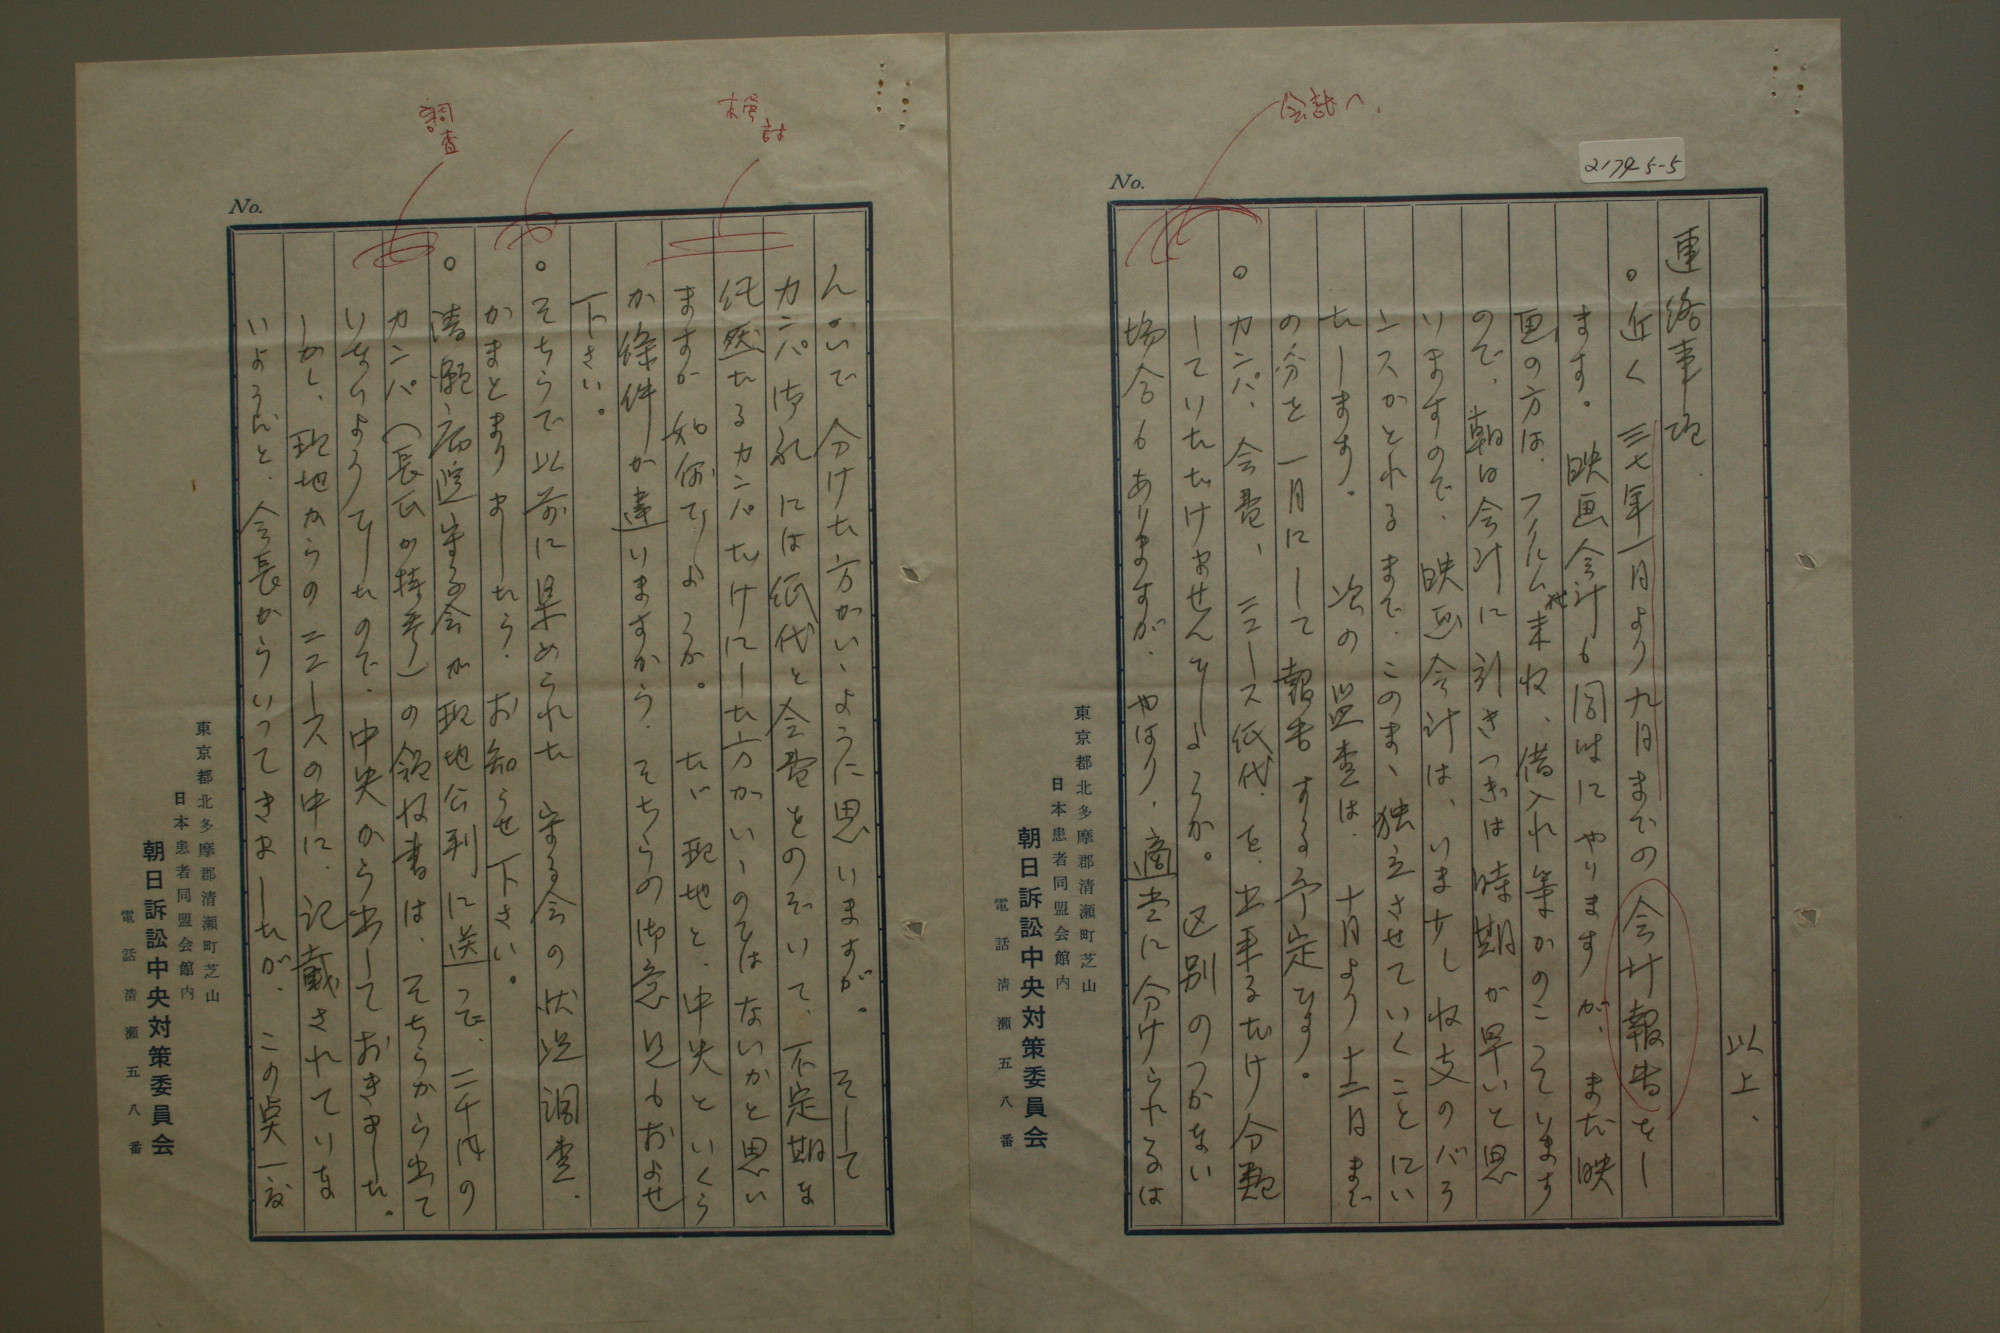 会計へ、
21745-5
No.
以上、
連絡事項.
○近く三七年一月より九月までの会計報告をし
ます。映画会計も同時にやりますが、まだ映
画の方は、フイルム代未収、借入れ等かのこっています
ので、朝日会計に引きつぎは時期が早いと思
いますので、映画会計は、いま少し収支のバラ
ンスがとれるまで、このまゝ独立させていくことにい
たします。次の監査は、十月より十二月まで
の分を一月にして報告する予定です。
○カンパ、会費、ニュース紙代、を、出来るだけ分類
していただけませんでしょうか。区別のつかない
場合もありますが、やはり、適当に分けられるは
東京都北多摩郡清瀬町芝山
日本患者同盟会館内
朝日訴訟中央対策委員会
電話清瀬五八番
検討
調査
No.
んいで分けた方がいゝように思いますが。そして
カンパ御礼には紙代と会費とをのぞいて、不定期な
純然たるカンパだけにした方がいゝのではないかと思い
ますが如何でしょうか。たゞ現地と、中央といくら
か條件が違いますから、そちらの御意見もおよせ
下さい。
○そちらで以前に集められた守る会の状況調査、
がまとまりましたら、お知らせ下さい。
○清瀬病院守る会が現地公判に送って、二千円の
カンパ(長氏が持参)の領収書は、そちらから出て
いないようでしたので、中央から出しておきました。
しかし、現地からのニュースの中に、記載されていな
いようだと、会長からいってきましたが、この点一応
東京都北多摩郡清瀬町芝山
日本患者同盟会館内
朝日訴訟中央対策委員会
電話清瀬五八番